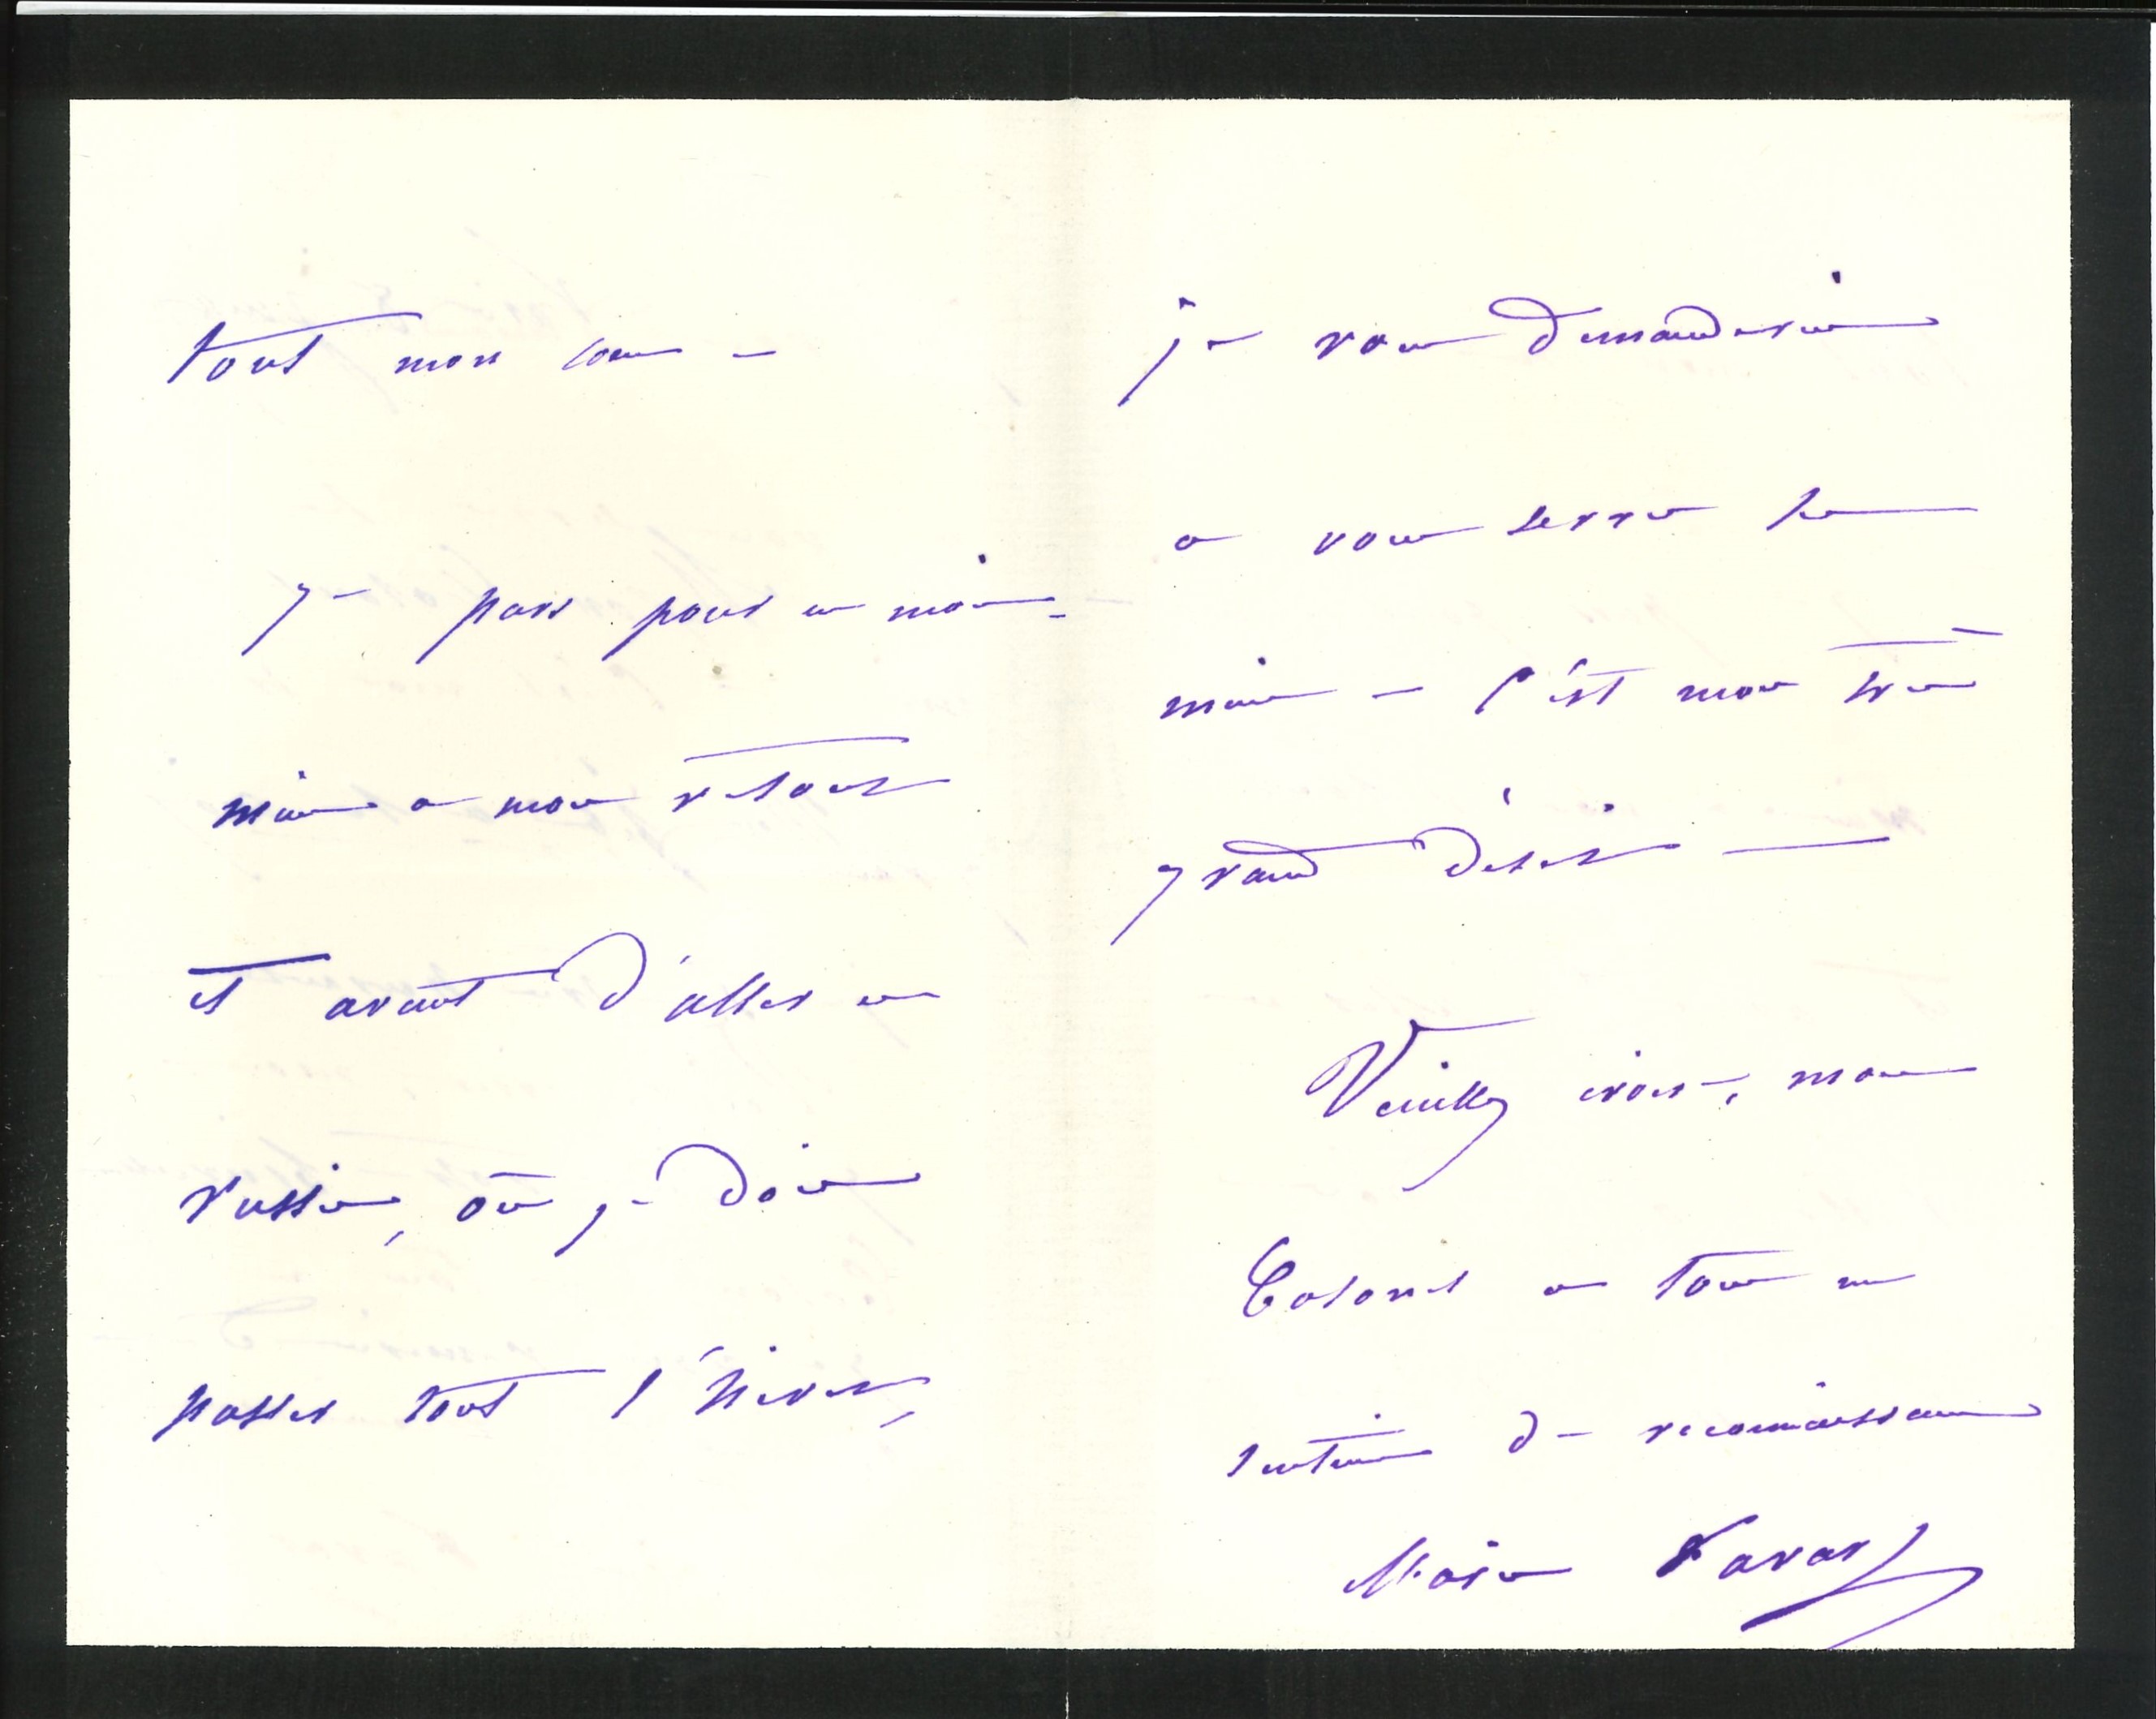 tout mon cœur –
je pars pour un mois –
mais à mon retour
et avant d'aller en
russie, où je dois
passer tout l'hiver,
je vous demanderai
à vous serrer la
main – C'est mon très
grand désir –
Veuillez croire, mon
Colonel à tous mes
sentiments de reconnaissance
Marie